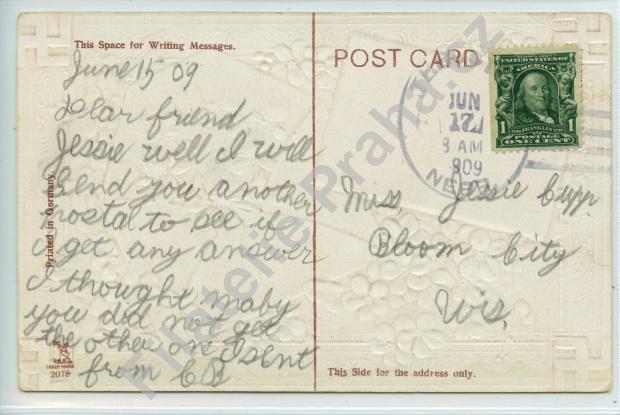 This Space for Writing Messages.
POST CARD
June 15 09
Dear friend
Jessie well I will
Send you another
postal to see if
I get any answer
I thought maby
you did not get
the other one I sent
from CB
Miss Jessie Cupp
Bloom City
Wis.
JUN
17
8 AM
909
NEB
UNITED STATES OF
AMERICA
1 FRANKLIN 1
POSTAGE ONE CENT
Printed in Germany
TRADE MARK
2078
This Side for the address only.
Filatelie-Praha.cz